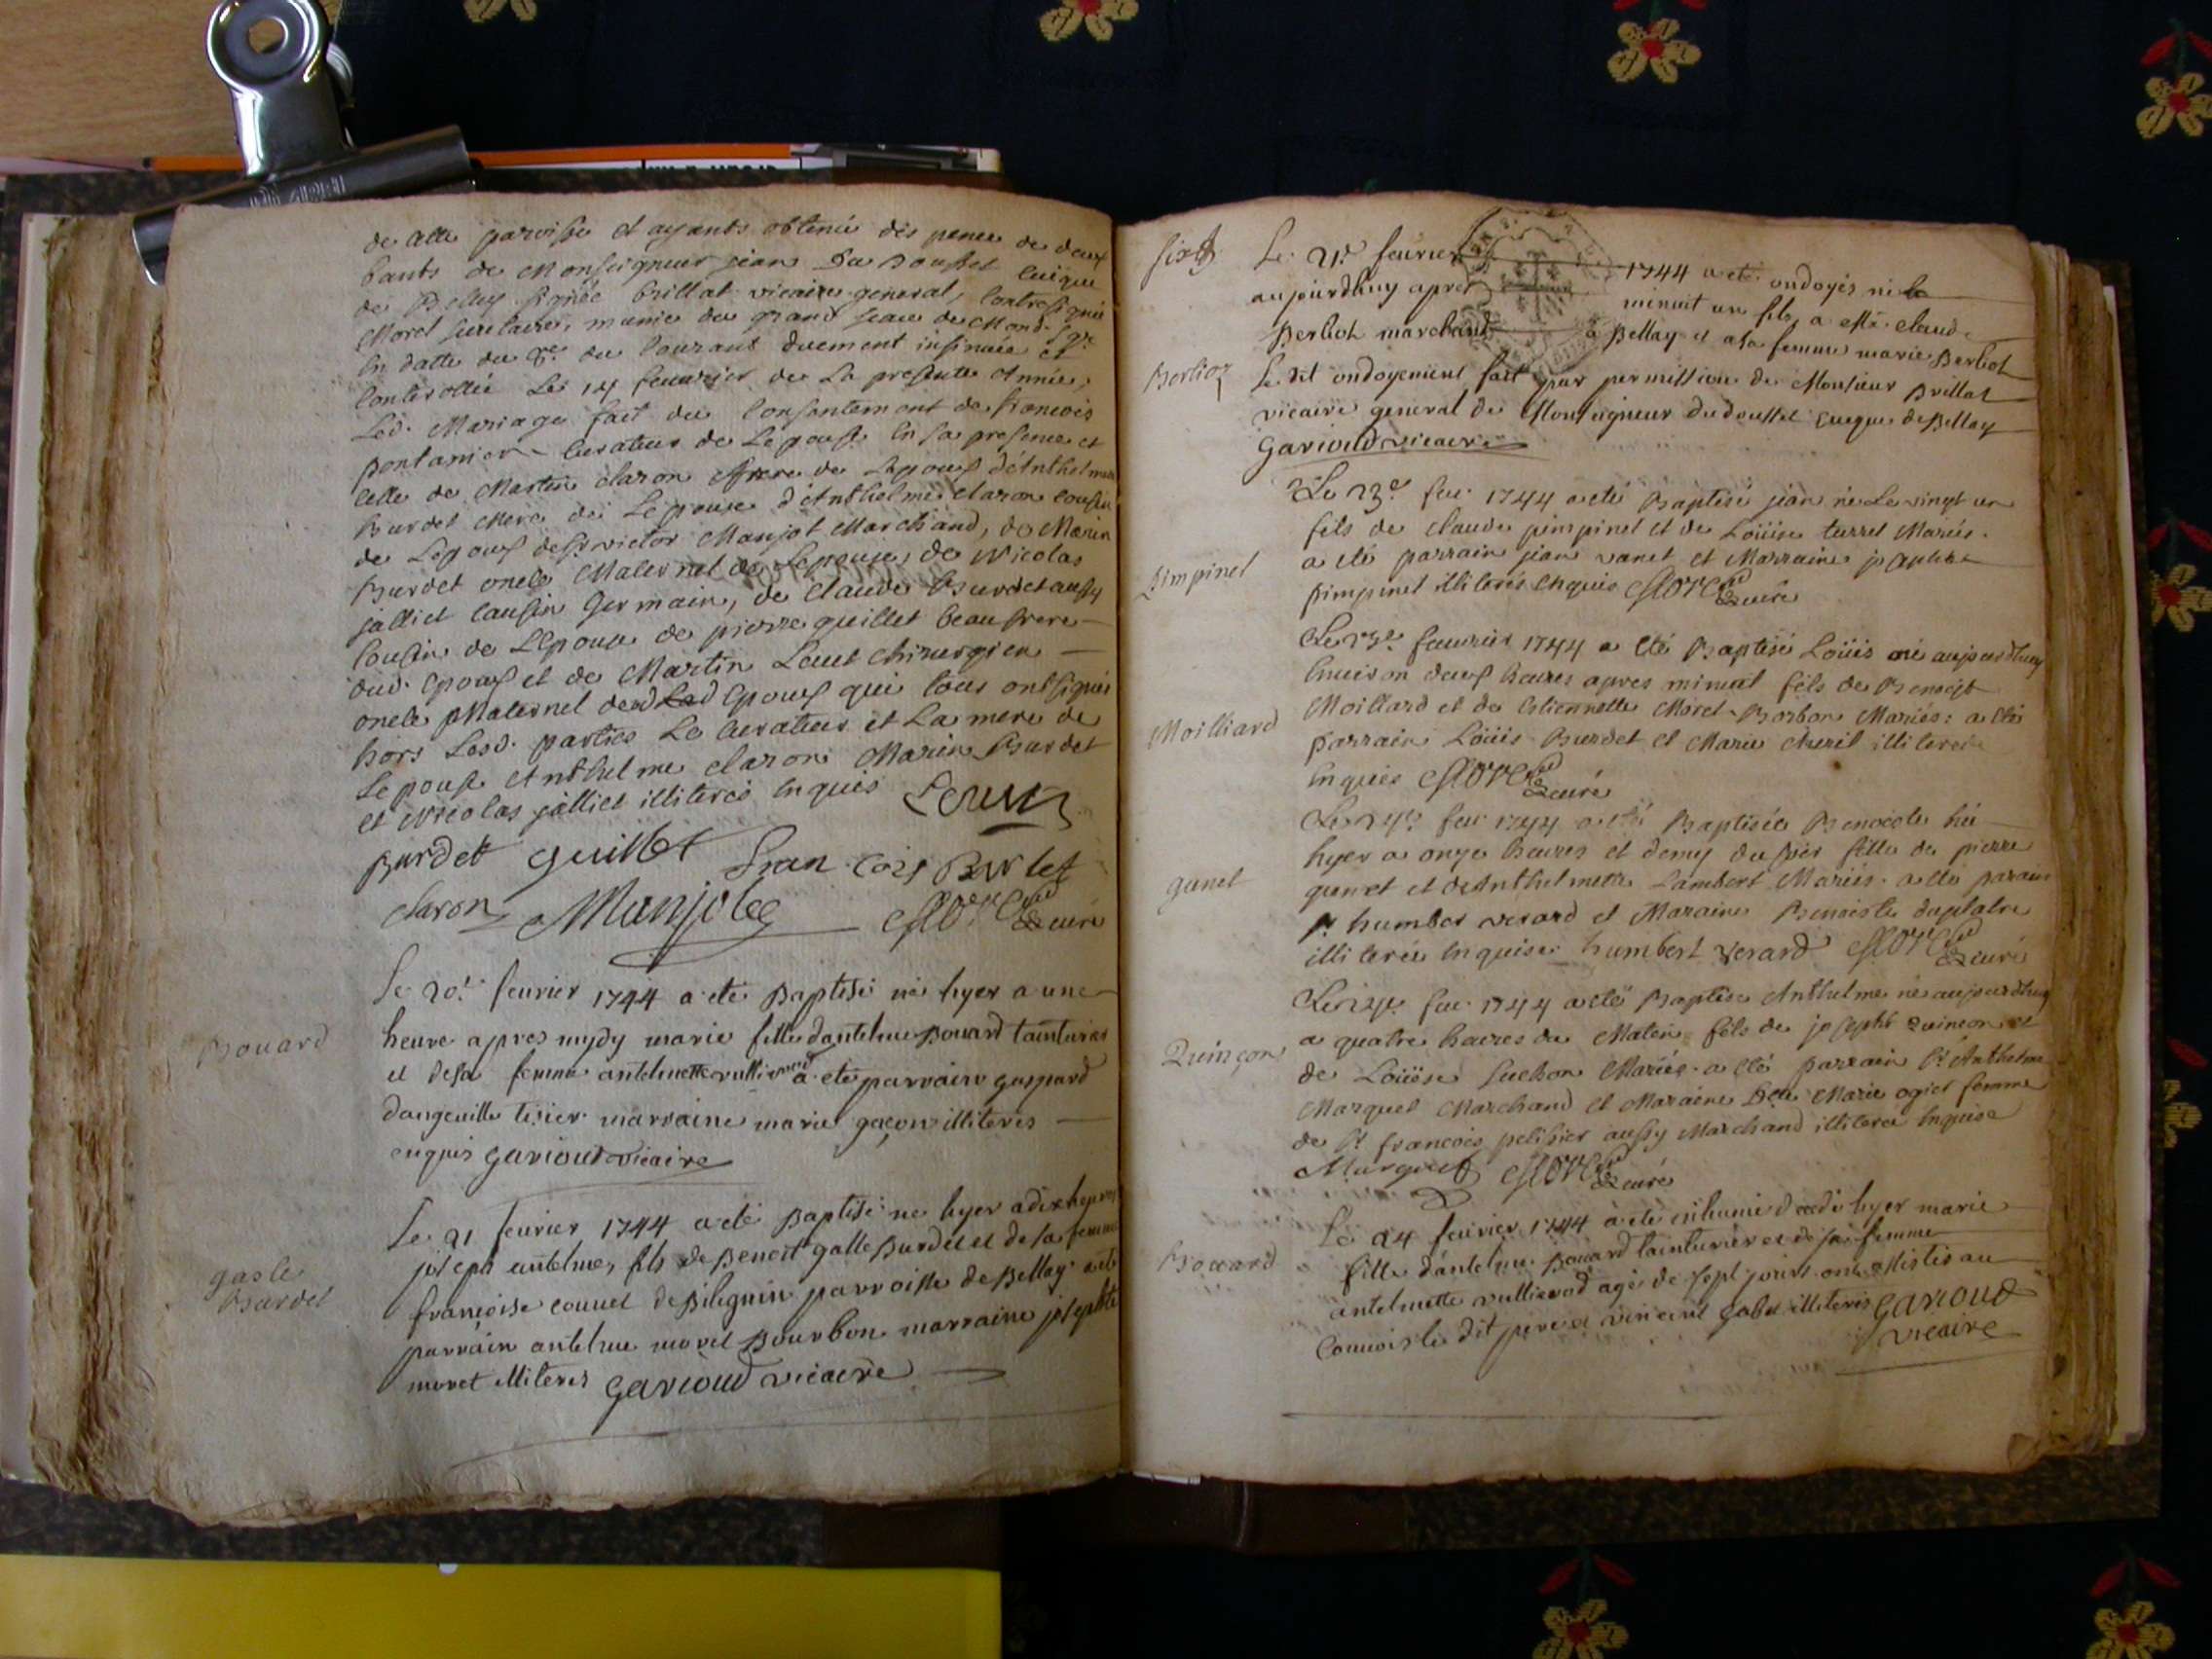 de cette paroisse et ayants obtenu dispence de deux
bants de Monseigneur jean Du Doussct Eveque
de Belley signée brillat vicaire general, Contresignée
Morel secretaire, munie du grand seau de Mond. Sgr.
En datte du du Courant duement insinuée et
Controllée Le 14 feuurier de La presente Année,
Led. Mariage fait du Consentement de francois
pontanier Curateur de Lepouse En sa presence et
Celle de Martin claron frere de Lepoux d'Anthelme
Burdet Mere de Lepouse d'Anthelme claron cousin
de Lepoux de Sr victor Manjot Marchand, de Marin
Burdet oncle Maternel de Lepouse, de Nicolas
jalliet Cousin Germain, de Claude Burdet aussy
Cousin de L'Epouse de pierre guillet beaufrere
dud. Epoux et de Martin Chirurgien
oncle Maternel dud Epoux qui tous ont signés
hors Lesd. parties Le Curateur et La mere de
Lepouse Anthelme claron Marin Burdet
et Nicolas jalliet illiterés Enquis
Burdet guillet fran cois Burdet
claron Manjot Morel curé
Bouard
Le 20e fevrier 1744 a eté Baptisé né hyer a une
heure apres mydy marie fille dantelme Bouard tainturier
et de sa femme antelmette vullierod a eté parrain gaspard
dangeville tisier marraine marie gaçon illiterés
enquis Garioud vicaire
gasle
Burdet
Le 21 fevrier 1744 a eté Baptisé né hyer a dix heures
joseph antelme, fils de Benoit galle Burdet et de sa femme
françoise couuet de Bilignin parroisse de Bellay a eté
parrain antelme morel Bourbon marraine josephte
moret illiterés Garioud vicaire
Le 21e fevrier 1744 a eté ondoyés né
aujourdhuy apres minuit un fils a Mre. claude
Berliot marchand a Bellay et a sa femme marie Berliot
Berlioz
Le dit ondoyement fait par permission de Monsieur Brillat
vicaire general de Monseigneur du doussct eveque de Bellay
Garioud vicaire
Le 23e feu. 1744 a eté Baptisé jean né Le vingt un
fils de claude pimpinel et de Loüise turrel Mariés.
Pimpinel
a eté parrain jean vanet et Marraine josephte
pimpinel illiterés Enquis Morel curé
Le 23e feuurier 1744 a eté Baptisé Loüis né aujourdhuy
Enuiron deux heures apres minuit fils de Benoist
Moilliard
Moillard et de Estiennette Morel-Borbon Mariés: a eté
parrain Loüis Burdet et Marie illiterés
Enquis Morel curé
Le 24e feu. 1744 a eté Baptisée Benoiste née
hyer a onze heures et demy du soir fille de pierre
ganet
quenet et d'Anthelmette Lambert Mariés. a eté parain
Sr humber verard et Maraine Benoiste duplatre
illiterée Enquise humbert verard Morel curé
Le 24e feu. 1744 a eté Baptisé Anthelme né aujourdhuy
a quatre heures du Matin fils de joseph quinçon et
Quinçon
de Loüise Suchon Mariés. a eté parrain Sr Anthelme
Marquet Marchand et Maraine Dlle Marie ogier femme
de Sr francois pelissier aussy Marchand illiteré Enquise
Marquet Morel curé
Le 24 fevrier 1744 a eté inhumé decedé hyer marie
Bouard
fille d'antelme Bouard tainturier et de sa femme
antelmette vullierod agé de sept jours ont assistés au
Convois le dit pere et vincent gabet illiterés Garioud
vicaire